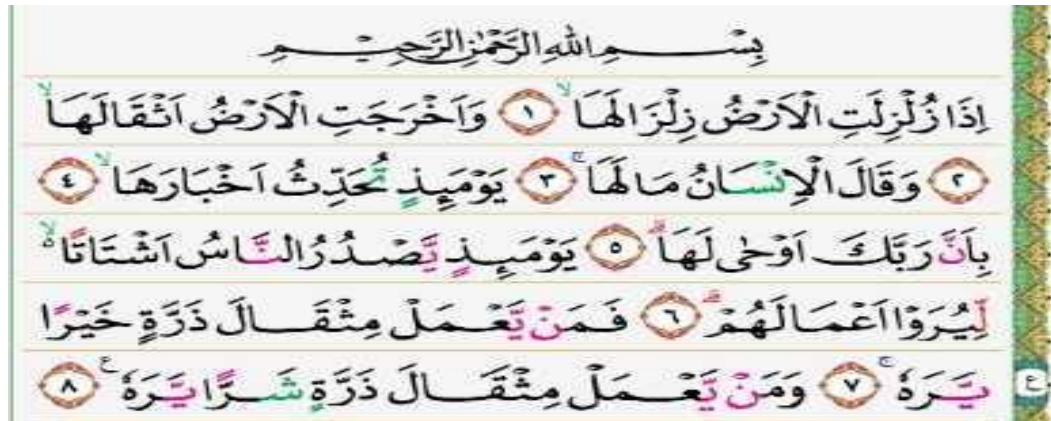 بِسْمِ اللهِ الرَّحْمٰنِ الرَّحِيْمِ
اِذَا زُلْزِلَتِ الْاَرْضُ زِلْزَالَهَاۙ ۝١ وَاَخْرَجَتِ الْاَرْضُ اَثْقَالَهَاۙ
۝٢ وَقَالَ الْاِنْسَانُ مَا لَهَاۚ ۝٣ يَوْمَىِٕذٍ تُحَدِّثُ اَخْبَارَهَاۙ ۝٤
بِاَنَّ رَبَّكَ اَوْحٰى لَهَاۗ ۝٥ يَوْمَىِٕذٍ يَّصْدُرُ النَّاسُ اَشْتَاتًا ەۙ
لِّيُرَوْا اَعْمَالَهُمْۗ ۝٦ فَمَنْ يَّعْمَلْ مِثْقَالَ ذَرَّةٍ خَيْرًا
يَّرَهٗۚ ۝٧ وَمَنْ يَّعْمَلْ مِثْقَالَ ذَرَّةٍ شَرًّا يَّرَهٗ ࣖ ۝٨
ع